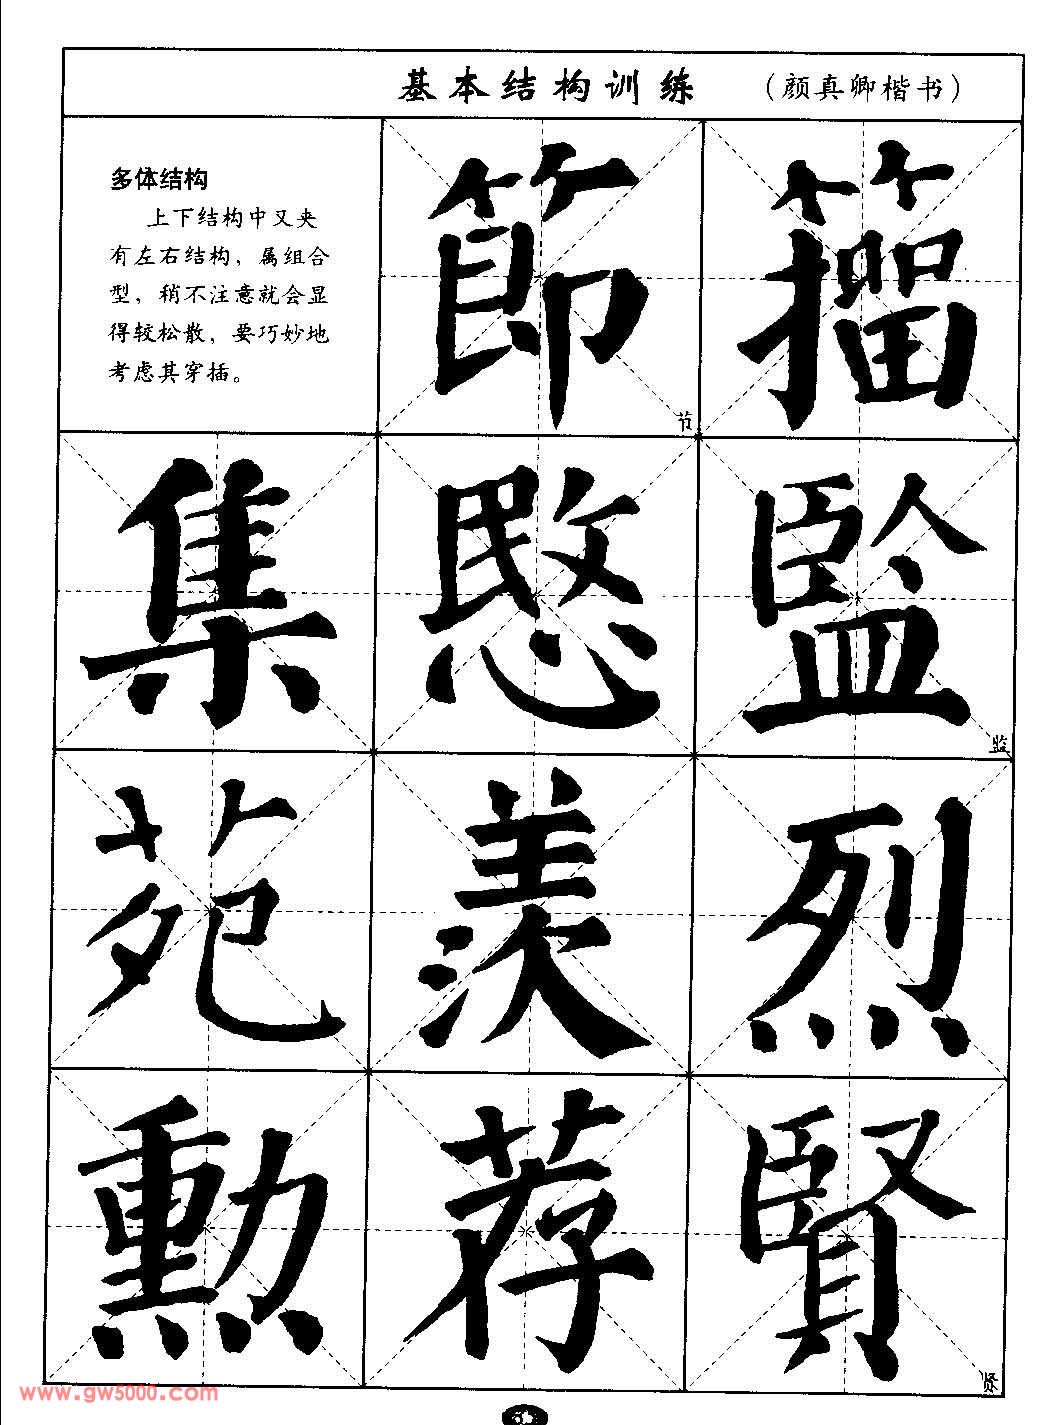 基本结构训练 （颜真卿楷书）
多体结构
上下结构中又夹
有左右结构，属组合
型，稍不注意就会显
得较松散，要巧妙地
考虑其穿插。
節 节 籀
集 愍 監 监
苑 羨 烈
勳 荐 賢 贤
www.gw5000.com